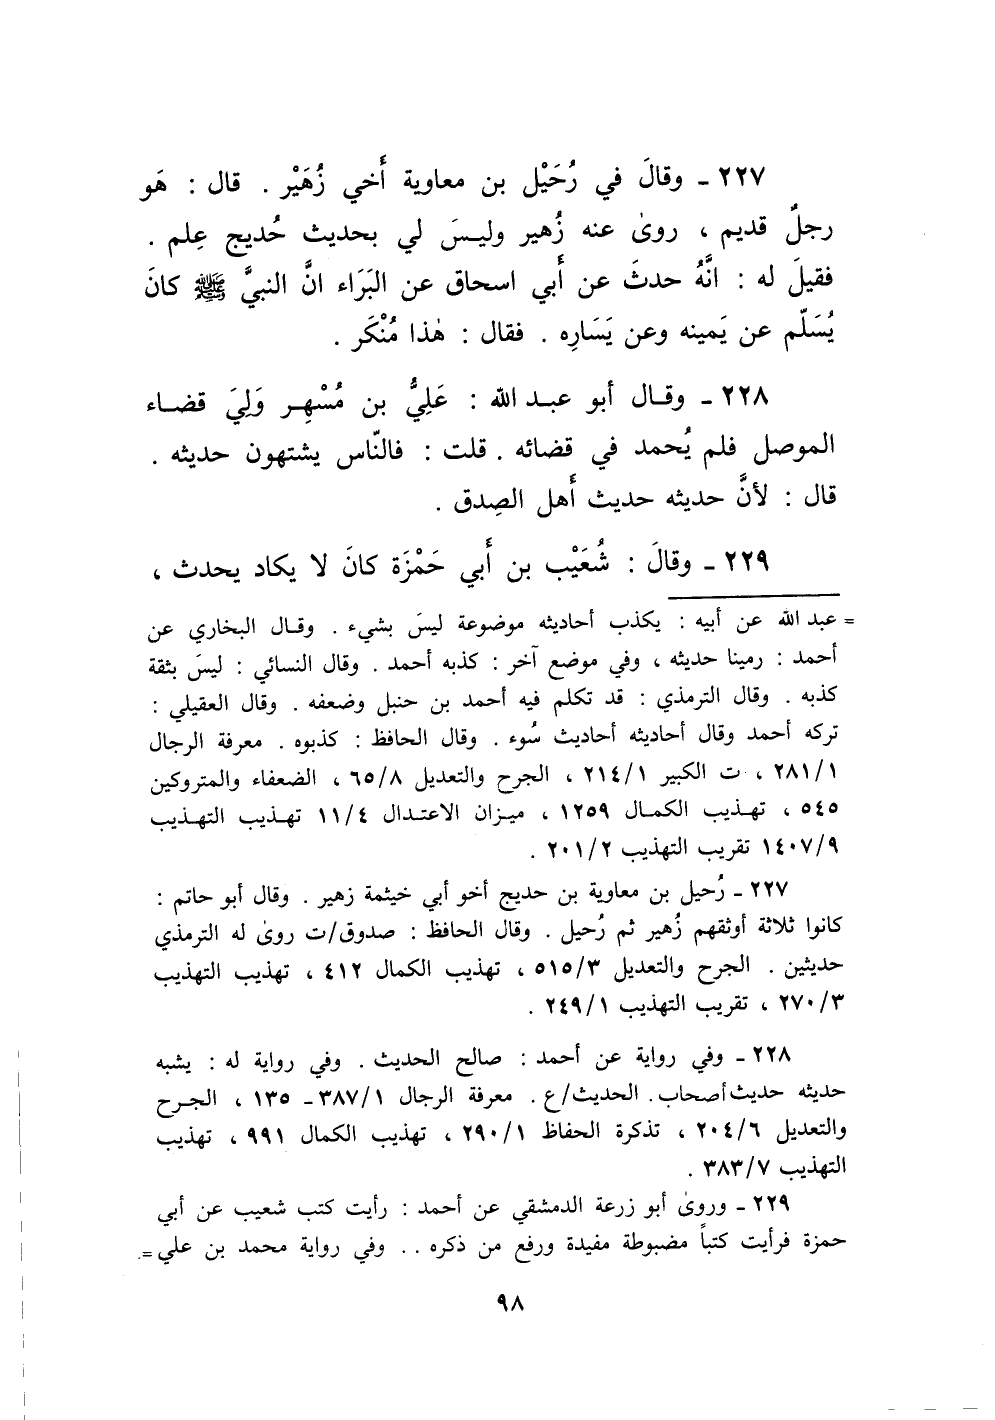 ٢٢٧ - وقالَ في رُحَيْل بن معاوية أَخي زُهَيْر . قال : هَو
رجلٌ قديم ، روىٰ عنه زُهير وليسَ لي بحديث حُديج عِلم .
فقيلَ له : انَّهُ حدثَ عن أَبي اسحاق عن البَرَاء انَّ النبيَّ ﷺ كانَ
يُسَلّم عن يَمينه وعن يَسَارِه . فقال : هٰذا مُنْكَر .
٢٢٨ - وقال أبو عبد الله : عَلِيُّ بن مُسْهِر وَلِيَ قضاء
الموصل فلم يُحمد في قضائه . قلت : فالنّاس يشتهون حديثه .
قال : لأنَّ حديثه حديث أَهل الصِدق .
٢٢٩ - وقالَ : شُعَيْب بن أَبي حَمْزَة كانَ لا يكاد يحدث ،
= عبد الله عن أبيه : يكذب أحاديثه موضوعة ليسَ بشيء . وقال البخاري عن
أحمد : رمينا حديثه ، وفي موضع آخر : كذبه أحمد . وقال النسائي : ليسَ بثقة
كذبه . وقال الترمذي : قد تكلم فيه أحمد بن حنبل وضعفه . وقال العقيلي :
تركه أحمد وقال أحاديثه أحاديث سُوء . وقال الحافظ : كذبوه . معرفة الرجال
٢٨١/١ ، ت الكبير ٢١٤/١ ، الجرح والتعديل ٦٥/٨ ، الضعفاء والمتروكين
٥٤٥ ، تهذيب الكمال ١٢٥٩ ، ميزان الاعتدال ١١/٤ تهذيب التهذيب
١٤٠٧/٩ تقريب التهذيب ٢٠١/٢ .
٢٢٧ - رُحيل بن معاوية بن حديج أخو أبي خيثمة زهير . وقال أبو حاتم :
كانوا ثلاثة أوثقهم زُهير ثم رُحيل . وقال الحافظ : صدوق/ت روىٰ له الترمذي
حديثين . الجرح والتعديل ٥١٥/٣ ، تهذيب الكمال ٤١٢ ، تهذيب التهذيب
٢٧٠/٣ ، تقريب التهذيب ٢٤٩/١ .
٢٢٨ - وفي رواية عن أحمد : صالح الحديث . وفي رواية له : يشبه
حديثه حديث أصحاب. الحديث/ع . معرفة الرجال ٣٨٧/١ - ١٣٥ ، الجرح
والتعديل ٢٠٤/٦ ، تذكرة الحفاظ ٢٩٠/١ ، تهذيب الكمال ٩٩١ ، تهذيب
التهذيب ٣٨٣/٧ .
٢٢٩ - وروىٰ أبو زرعة الدمشقي عن أحمد : رأيت كتب شعيب عن أبي
حمزة فرأيت كتباً مضبوطة مفيدة ورفع من ذكره .. وفي رواية محمد بن علي =
٩٨